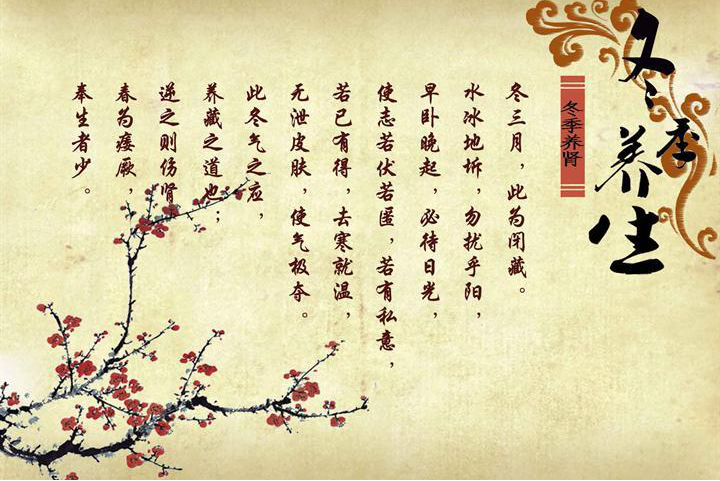 冬季养生
冬季养肾
冬三月，此为闭藏。
水冰地坼，勿扰乎阳，
早卧晚起，必待日光，
使志若伏若匿，若有私意，
若已有得，去寒就温，
无泄皮肤，使气极夺。
此冬气之应，
养藏之道也；
逆之则伤肾
春为痿厥，
奉生者少。